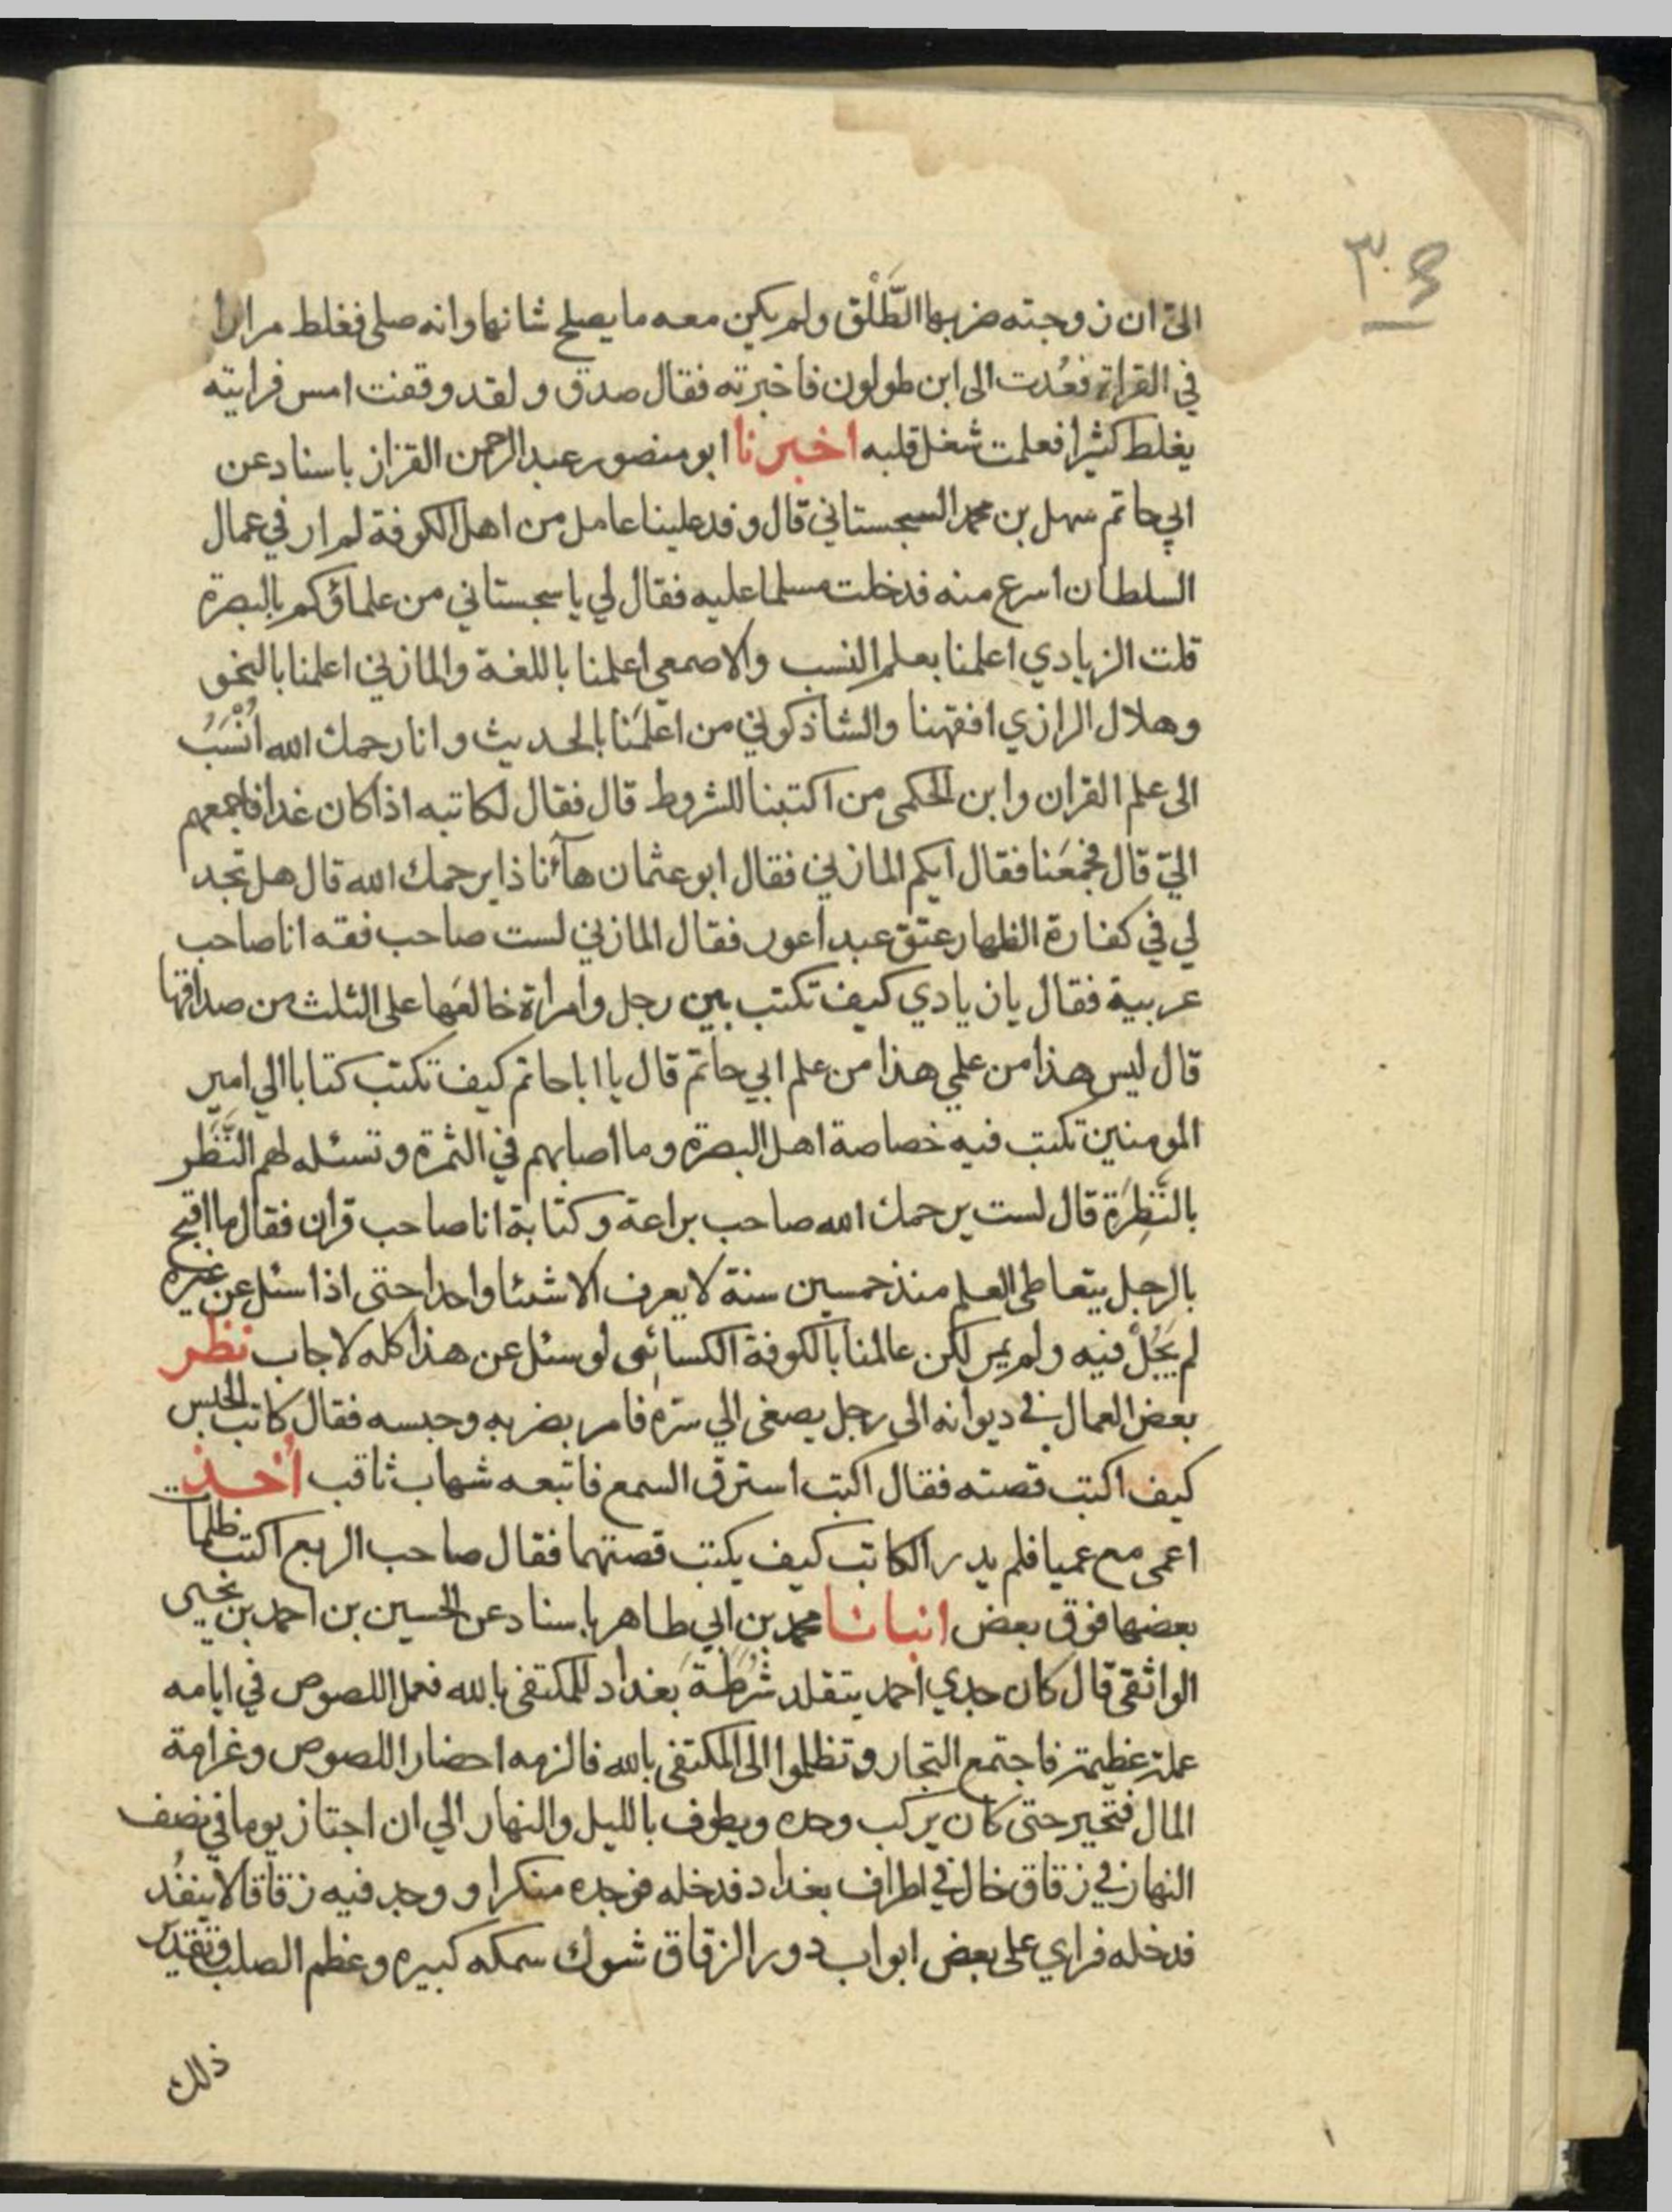 ٣٠
الىّ ان زوجته ضربها الطَّلْق ولم يكن معه ما يصلح شانها وانه صلى فغلط مرارا
في القراة فعُدت الى ابن طولون فاخبرته فقال صدق ولقد وقفت امس فرايته
يغلط كثيرا فعلمت شغل قلبه اخبرنا ابو منصور عبد الرحمن القزاز باسناد عن
ابي حاتم سهل بن محمد السجستاني قال وفد علينا عامل من اهل الكوفة لم ار في عمال
السلطان اسرع منه فدخلت مسلما عليه فقال لي يا سجستاني من علماؤكم بالبصرة
قلت الزيادي اعلمنا بعلم النسب والاصمعي اعلمنا باللغة والمازني اعلمنا بالنحو
وهلال الرازي افقهنا والشاذكوني من اعلمَنا بالحديث وانا رحمك الله اُنْسَبُ
الى علم القران وابن الحكمى من اكتبنا للشروط قال فقال لكاتبه اذا كان غدا فاجمعهم
اليّ قال فجمعَنا فقال ايكم المازني فقال ابو عثمان هآئنا ذا يرحمك الله قال هل تجد
لي في كفارة الظهار عتق عبد اعور فقال المازني لست صاحب فقه انا صاحب
عربية فقال يازيادي كيف تكتب بين رجل وامراة خالعَها على الثلث من صداقها
قال ليس هذا من علمي هذا من علم ابي حاتم قال يا ابا حاتم كيف تكتب كتابا الي امير
المومنين تكتب فيه خصاصة اهل البصرة وما اصابهم في الثمرة وتسئله لهم النَّظَر
بالنَّظِرَة قال لست يرحمك الله صاحب براعة وكتابة انا صاحب قران فقال ما اقبح
بالرجل يتعاطى العلم منذ خمسين سنة لا يعرف الا شئا واحدا حتى اذا سئل عن غيره
لم يَجُلْ فيه ولم يمر لكن عالمنا بالكوفة الكسائى لو سئل عن هذا كله لاجاب نظر
بعض العمال في ديوانه الى رجل يصغى الي سره فامر بضربه وحبسه فقال كاتب الحبس
كيف اكتب قصته فقال اكتب استرق السمع فاتبعه شهاب ثاقب اُخذ
اعمى مع عميا فلم يدر الكاتب كيف يكتب قصتهما فقال صاحب الربع اكتب ظلمات
بعضها فوق بعض انبانا محمد بن ابي طاهر باسناد عن الحسين بن احمد بن يحيى
الواثقى قال كان جدي احمد يتقلد شُرطةَ بغداد للمكتفى بالله فعمل اللصوص في ايامه
عملة عظيمة فاجتمع التجار وتظلموا الى المكتفى بالله فالزمه احضار اللصوص وغرامة
المال فتحير حتى كان يركب وحده ويطوف بالليل والنهار الي ان اجتاز يوما في نصف
النهار في زقاق خال في اطراف بغداد فدخله فوجده منكرا ووجد فيه زقاقا لا ينفُد
فدخله فراي على بعض ابواب دور الزقاق شوك سمكه كبيره وعظم الصلب وتقدير
ذلك